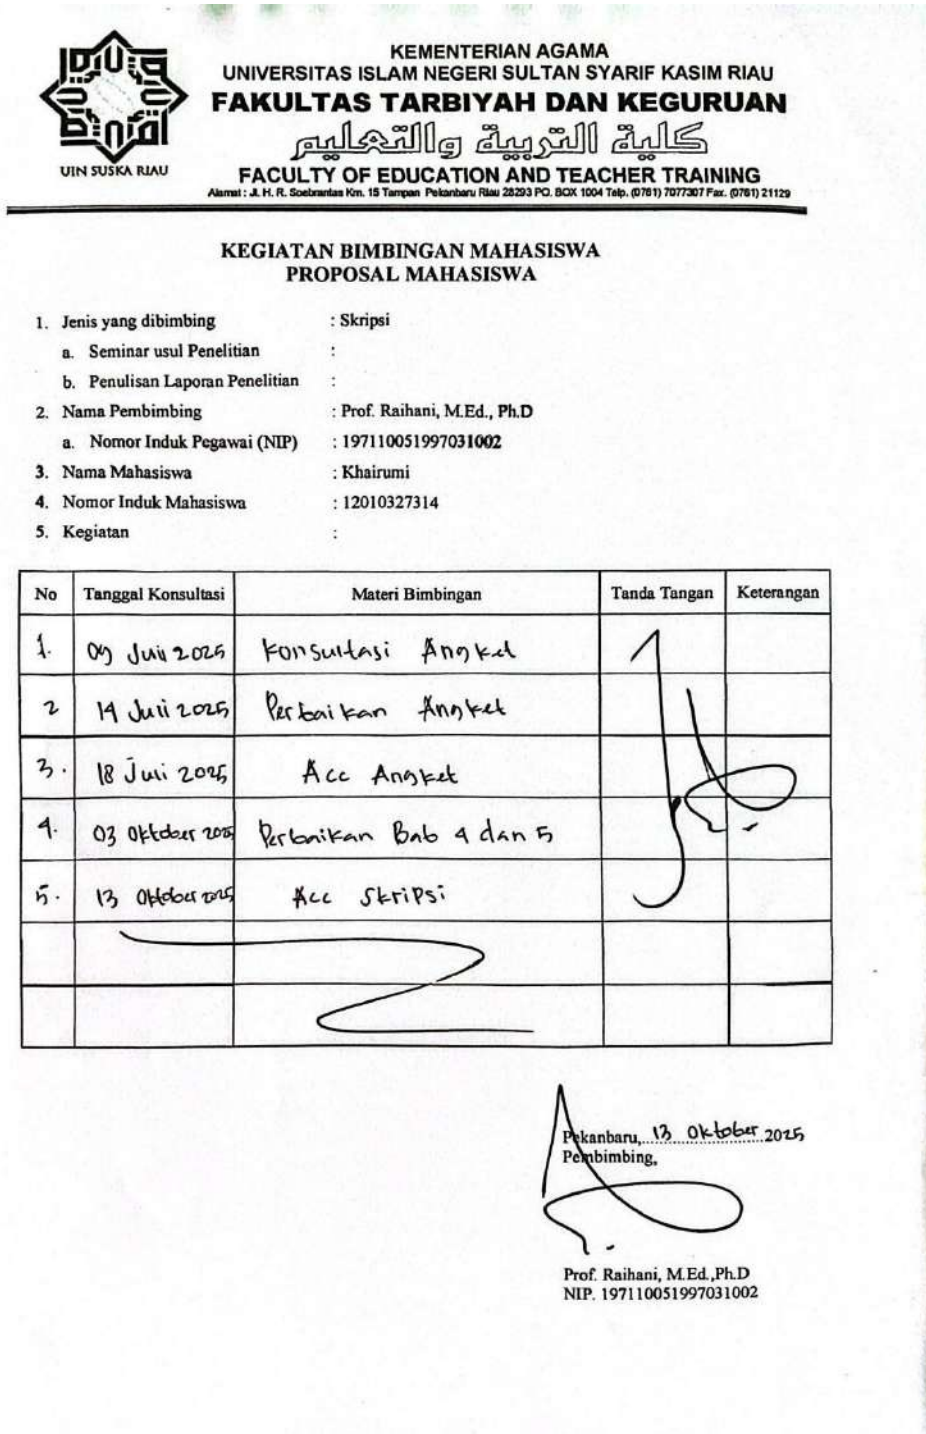 KEMENTERIAN AGAMA
UNIVERSITAS ISLAM NEGERI SULTAN SYARIF KASIM RIAU
FAKULTAS TARBIYAH DAN KEGURUAN
كلية التربية والتعليم
UIN SUSKA RIAU
FACULTY OF EDUCATION AND TEACHER TRAINING
Alamat : Jl. H. R. Soebrantas Km. 15 Tampan Pekanbaru Riau 28293 PO. BOX 1004 Telp. (0761) 7077307 Fax. (0761) 21129
KEGIATAN BIMBINGAN MAHASISWA
PROPOSAL MAHASISWA
1. Jenis yang dibimbing : Skripsi
a. Seminar usul Penelitian :
b. Penulisan Laporan Penelitian :
2. Nama Pembimbing : Prof. Raihani, M.Ed., Ph.D
a. Nomor Induk Pegawai (NIP) : 197110051997031002
3. Nama Mahasiswa : Khairumi
4. Nomor Induk Mahasiswa : 12010327314
5. Kegiatan :
No Tanggal Konsultasi Materi Bimbingan Tanda Tangan Keterangan
1. 09 Juli 2025 Konsultasi Angket
2 14 Juli 2025 Perbaikan Angket
3. 18 Juli 2025 Acc Angket
4. 03 Oktober 2025 Perbaikan Bab 4 dan 5
5. 13 Oktober 2025 Acc Skripsi
Pekanbaru, 13 Oktober 2025
Pembimbing,
Prof. Raihani, M.Ed.,Ph.D
NIP. 197110051997031002